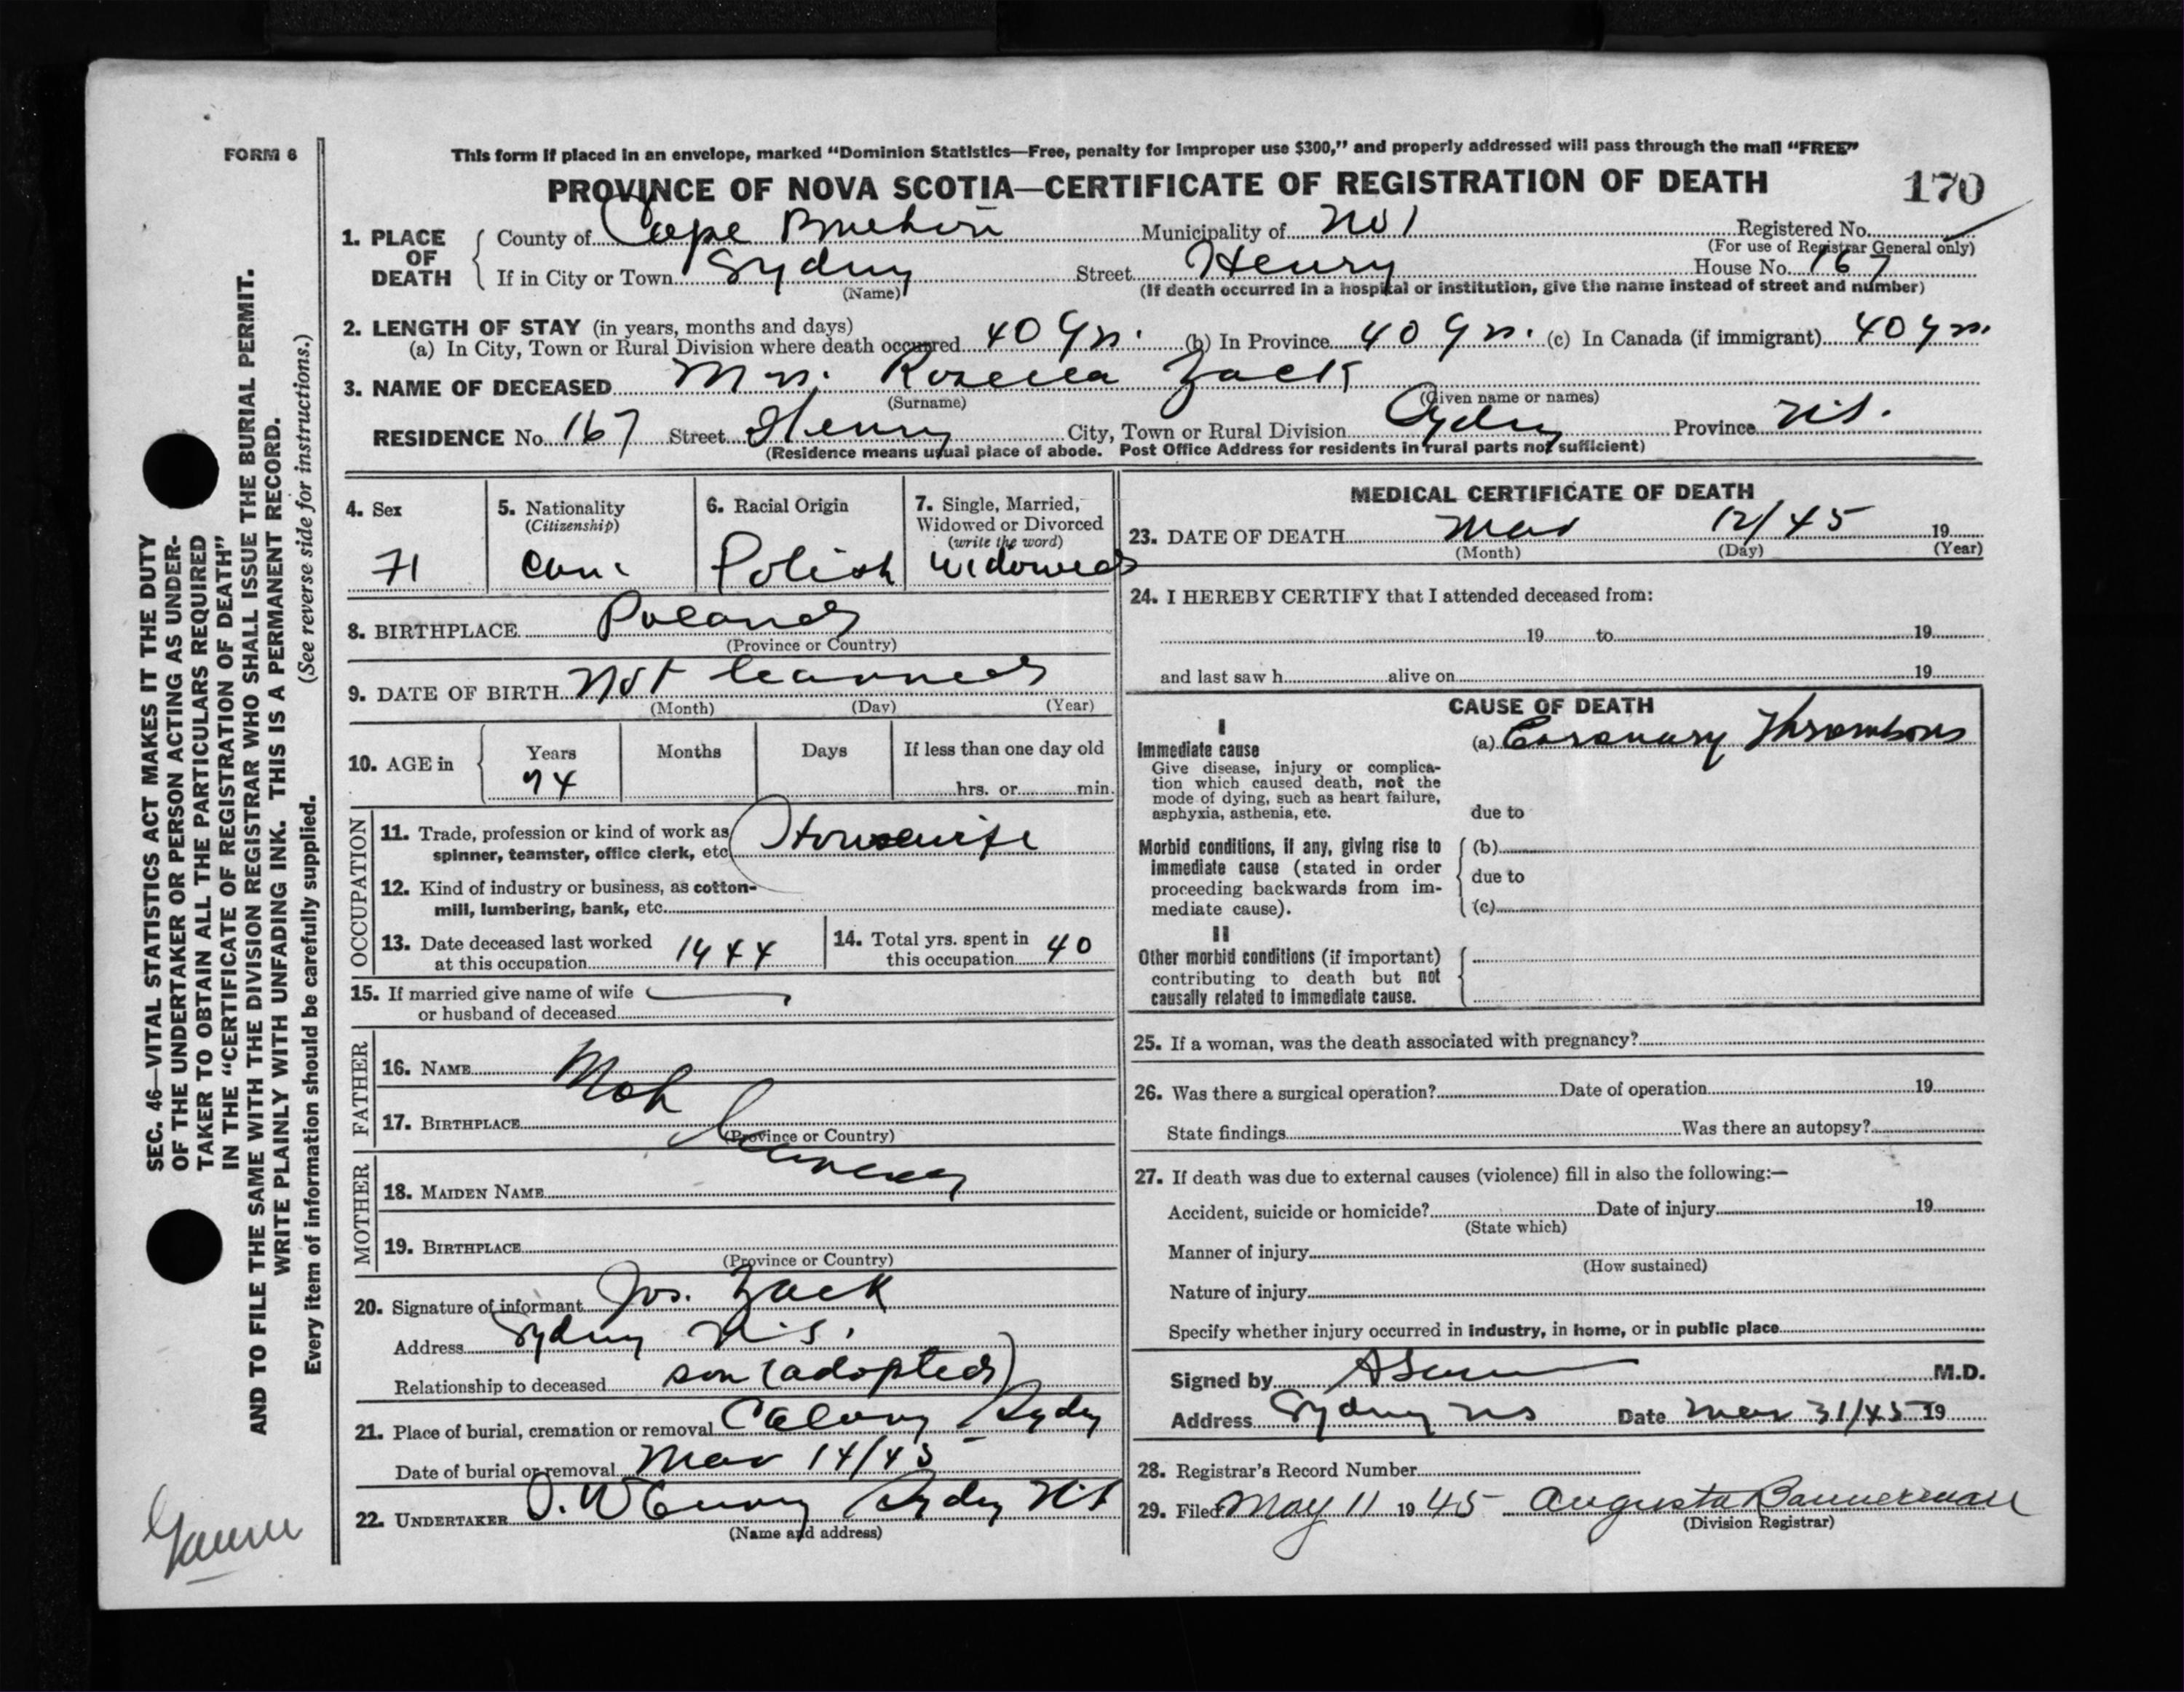 FORM 6
This form if placed in an envelope, marked “Dominion Statistics—Free, penalty for improper use $300,” and properly addressed will pass through the mail “FREE”
PROVINCE OF NOVA SCOTIA—CERTIFICATE OF REGISTRATION OF DEATH
170
1. PLACE OF DEATH
County of Cape Breton Municipality of No 1 Registered No.
(For use of Registrar General only)
If in City or Town Sydney Street Henry House No. 167
(Name) (If death occurred in a hospital or institution, give the name instead of street and number)
2. LENGTH OF STAY (in years, months and days)
(a) In City, Town or Rural Division where death occurred 40 yrs. (b) In Province 40 yrs. (c) In Canada (if immigrant) 40 yrs.
3. NAME OF DECEASED Mrs. Rozella Zack
(Surname) (Given name or names)
RESIDENCE No. 167 Street Henry City, Town or Rural Division Sydney Province N.S.
(Residence means usual place of abode. Post Office Address for residents in rural parts not sufficient)
4. Sex
71
5. Nationality
(Citizenship)
Can.
6. Racial Origin
Polish
7. Single, Married,
Widowed or Divorced
(write the word)
Widowed
8. BIRTHPLACE Poland
(Province or Country)
9. DATE OF BIRTH Not learned
(Month) (Day) (Year)
10. AGE in
Years Months Days If less than one day old
74 hrs. or min.
OCCUPATION
11. Trade, profession or kind of work as
spinner, teamster, office clerk, etc. Housewife
12. Kind of industry or business, as cotton-
mill, lumbering, bank, etc.
13. Date deceased last worked
at this occupation 1944
14. Total yrs. spent in
this occupation 40
15. If married give name of wife
or husband of deceased
FATHER
16. NAME Not
17. BIRTHPLACE
(Province or Country)
learned
MOTHER
18. MAIDEN NAME
19. BIRTHPLACE
(Province or Country)
20. Signature of informant Jos. Zack
Address Sydney N.S.
Relationship to deceased son (adopted)
21. Place of burial, cremation or removal Calvary Sydney
Date of burial or removal Mar 14/45
22. UNDERTAKER Sydney N.S.
(Name and address)
MEDICAL CERTIFICATE OF DEATH
23. DATE OF DEATH Mar 12/45 19
(Month) (Day) (Year)
24. I HEREBY CERTIFY that I attended deceased from:
19 to 19
and last saw h alive on 19
CAUSE OF DEATH
I
Immediate cause
Give disease, injury or complica-
tion which caused death, not the
mode of dying, such as heart failure,
asphyxia, asthenia, etc.
(a) Coronary Thrombosis
due to
Morbid conditions, if any, giving rise to
immediate cause (stated in order
proceeding backwards from im-
mediate cause).
(b)
due to
(c)
II
Other morbid conditions (if important)
contributing to death but not
causally related to immediate cause.
25. If a woman, was the death associated with pregnancy?
26. Was there a surgical operation? Date of operation 19
State findings Was there an autopsy?
27. If death was due to external causes (violence) fill in also the following:—
Accident, suicide or homicide? Date of injury 19
(State which)
Manner of injury
(How sustained)
Nature of injury
Specify whether injury occurred in industry, in home, or in public place
Signed by M.D.
Address Sydney NS Date Mar 31/45 19
28. Registrar's Record Number
29. Filed May 11 1945 Augusta Bannerman
(Division Registrar)
SEC. 46—VITAL STATISTICS ACT MAKES IT THE DUTY
OF THE UNDERTAKER OR PERSON ACTING AS UNDER-
TAKER TO OBTAIN ALL THE PARTICULARS REQUIRED
IN THE “CERTIFICATE OF REGISTRATION OF DEATH”
AND TO FILE THE SAME WITH THE DIVISION REGISTRAR WHO SHALL ISSUE THE BURIAL PERMIT.
WRITE PLAINLY WITH UNFADING INK. THIS IS A PERMANENT RECORD.
Every item of information should be carefully supplied. (See reverse side for instructions.)